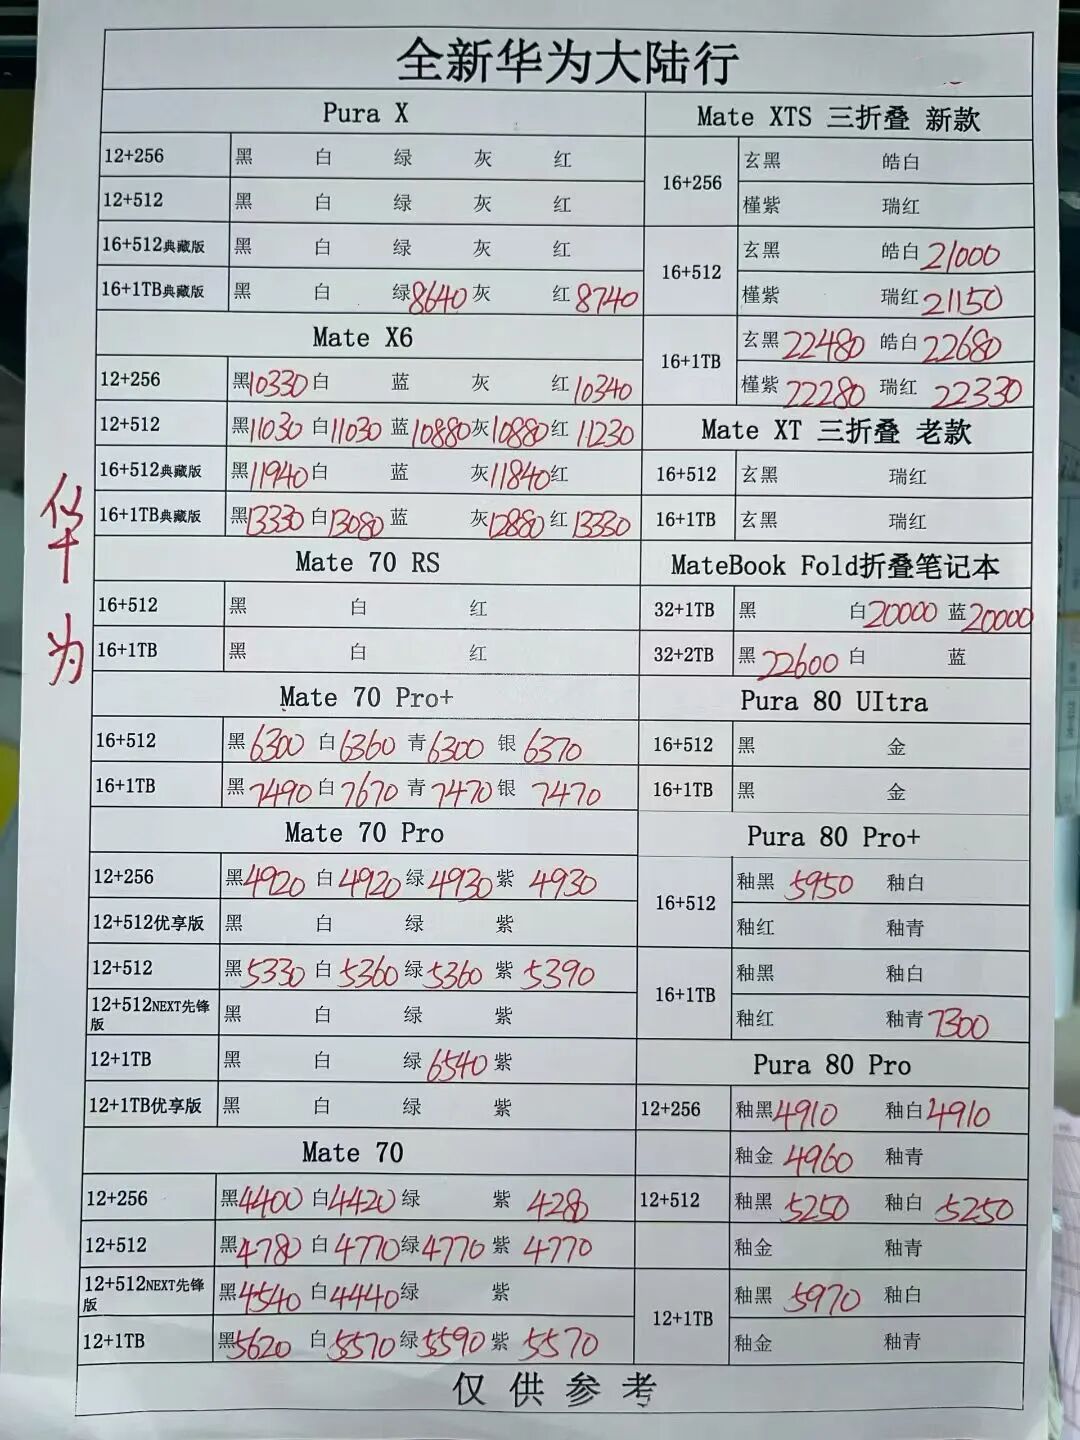 全新华为大陆行
Pura X
12+256 黑 白 绿 灰 红
12+512 黑 白 绿 灰 红
16+512典藏版 黑 白 绿 灰 红
16+1TB典藏版 黑 白 绿8640 灰 红8740
Mate X6
12+256 黑10330 白 蓝 灰 红10340
12+512 黑11030 白11030 蓝10880 灰10880 红11230
16+512典藏版 黑11940 白 蓝 灰11840 红
16+1TB典藏版 黑13330 白13080 蓝 灰12880 红13330
Mate 70 RS
16+512 黑 白 红
16+1TB 黑 白 红
Mate 70 Pro+
16+512 黑6300 白6360 青6300 银6370
16+1TB 黑7490 白7670 青7470 银7470
Mate 70 Pro
12+256 黑4920 白4920 绿4930 紫4930
12+512优享版 黑 白 绿 紫
12+512 黑5330 白5360 绿5360 紫5390
12+512NEXT先锋版 黑 白 绿 紫
12+1TB 黑 白 绿6540 紫
12+1TB优享版 黑 白 绿 紫
Mate 70
12+256 黑4400 白4420 绿 紫4280
12+512 黑4780 白4770 绿4770 紫4770
12+512NEXT先锋版 黑4540 白4440 绿 紫
12+1TB 黑5620 白5570 绿5590 紫5570
Mate XTS 三折叠 新款
16+256 玄黑 皓白
槿紫 瑞红
16+512 玄黑 皓白21000
槿紫 瑞红21150
16+1TB 玄黑22480 皓白22680
槿紫22280 瑞红22330
Mate XT 三折叠 老款
16+512 玄黑 瑞红
16+1TB 玄黑 瑞红
MateBook Fold折叠笔记本
32+1TB 黑 白20000 蓝20000
32+2TB 黑22600 白 蓝
Pura 80 UItra
16+512 黑 金
16+1TB 黑 金
Pura 80 Pro+
16+512 釉黑5950 釉白
釉红 釉青
16+1TB 釉黑 釉白
釉红 釉青7300
Pura 80 Pro
12+256 釉黑4910 釉白4910
釉金4960 釉青
12+512 釉黑5250 釉白5250
釉金 釉青
12+1TB 釉黑5970 釉白
釉金 釉青
仅供参考
华为